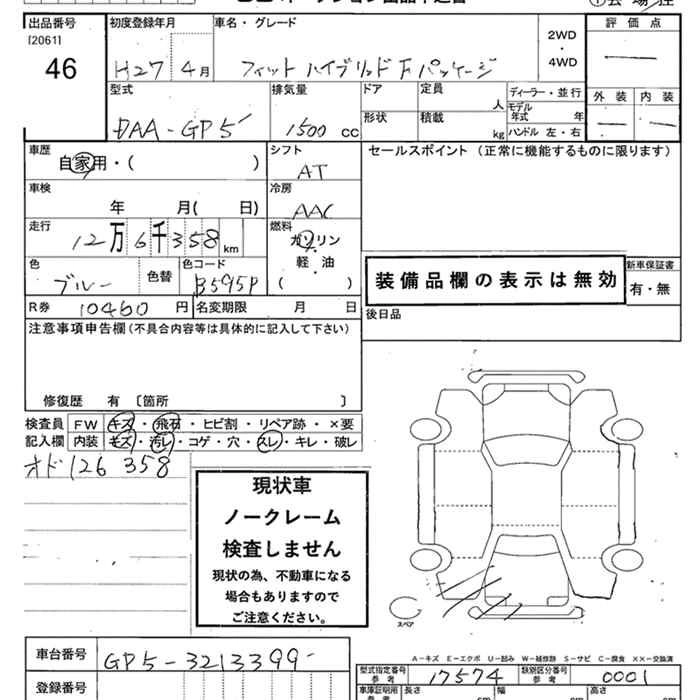 出品番号 初度登録年月 車名・グレード 評価点
[2061]
46 H27 4月 フィット ハイブリッド Fパッケージ 2WD・4WD
型式 排気量 ドア 定員 人 ディーラー・並行 外装 内装
DAA-GP5 1500 cc 形状 積載 kg モデル年式 年
ハンドル 左・右
車歴 シフト セールスポイント(正常に機能するものに限ります)
自家用・( ) AT
車検 冷房
年 月( 日) AAC
走行 燃料
12万6千358km ガソリン
軽・油
( )
色 色替 色コード
ブルー B595P
装備品欄の表示は無効 新車保証書
有・無
R券 10460円 名変期限 月 日 後日品
注意事項申告欄(不具合内容等は具体的に記入して下さい)
修復歴 有 〔箇所 〕
検査員 FW キズ・飛石・ヒビ割・リペア跡・×要
記入欄 内装 キズ・汚レ・コゲ・穴・スレ・キレ・破レ
オド 126358
現状車
ノークレーム
検査しません
現状の為、不動車になる
場合もありますので
ご注意ください。
スペア
A-キズ E-エクボ U-凹み W-補修跡 S-サビ C-腐食 XX-交換済
車台番号 GP5-3213399-
型式指定番号 参考 17574 類別区分番号 参考 0001
登録番号 車庫証明用 参考 長さ cm 幅 cm 高さ cm